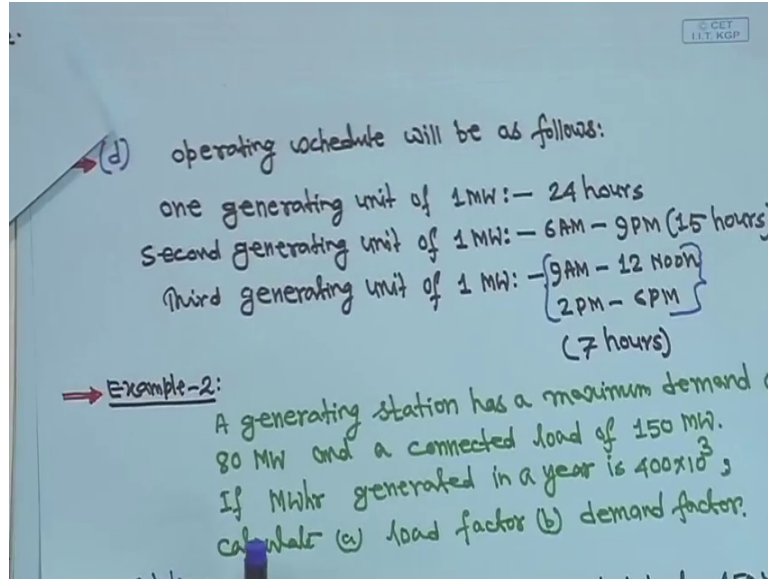 © CET
I.I.T. KGP
(d) operating schedule will be as follows:
one generating unit of 1MW:- 24 hours
Second generating unit of 1 MW: - 6AM - 9PM (15 hours)
Third generating unit of 1 MW: - {9AM - 12 Noon
2PM - 6PM}
(7 hours)
Example-2:
A generating station has a maximum demand
80 MW and a connected load of 150 MW.
If MWhr generated in a year is 400x10³,
calculate (a) load factor (b) demand factor.